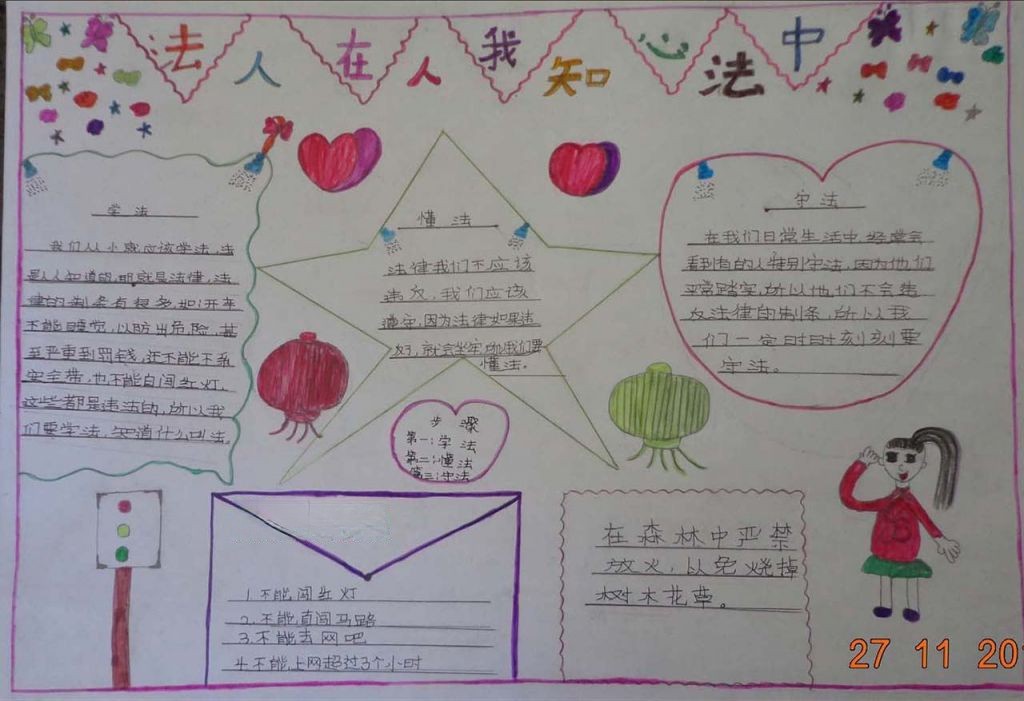 法人在人我知心法中
学法
我们从小就应该学法，法
是人人知道的，那就是法律，法
律的制条有很多，如：开车
不能睡觉，以防出危险，甚
至严重到罚钱，还不能不系
安全带，也不能自闯红灯。
这些都是违法的，所以我
们要学法，知道什么叫法。
懂法
法律我们不应该
违反，我们应该
遵守，因为法律如果违
反，就会坐牢，所以我们要
懂法。
守法
在我们日常生活中，经常会
看到有的人特别守法，因为他们
平常踏实，所以他们不会违
反法律的制条，所以我
们一定时时刻刻要
守法。
步骤
第一：学法
第二：懂法
第三：守法
1.不能闯红灯
2.不能直闯马路
3.不能去网吧
4.不能上网超过3个小时
在森林中严禁
放火，以免烧掉
树木花草。
27 11 20